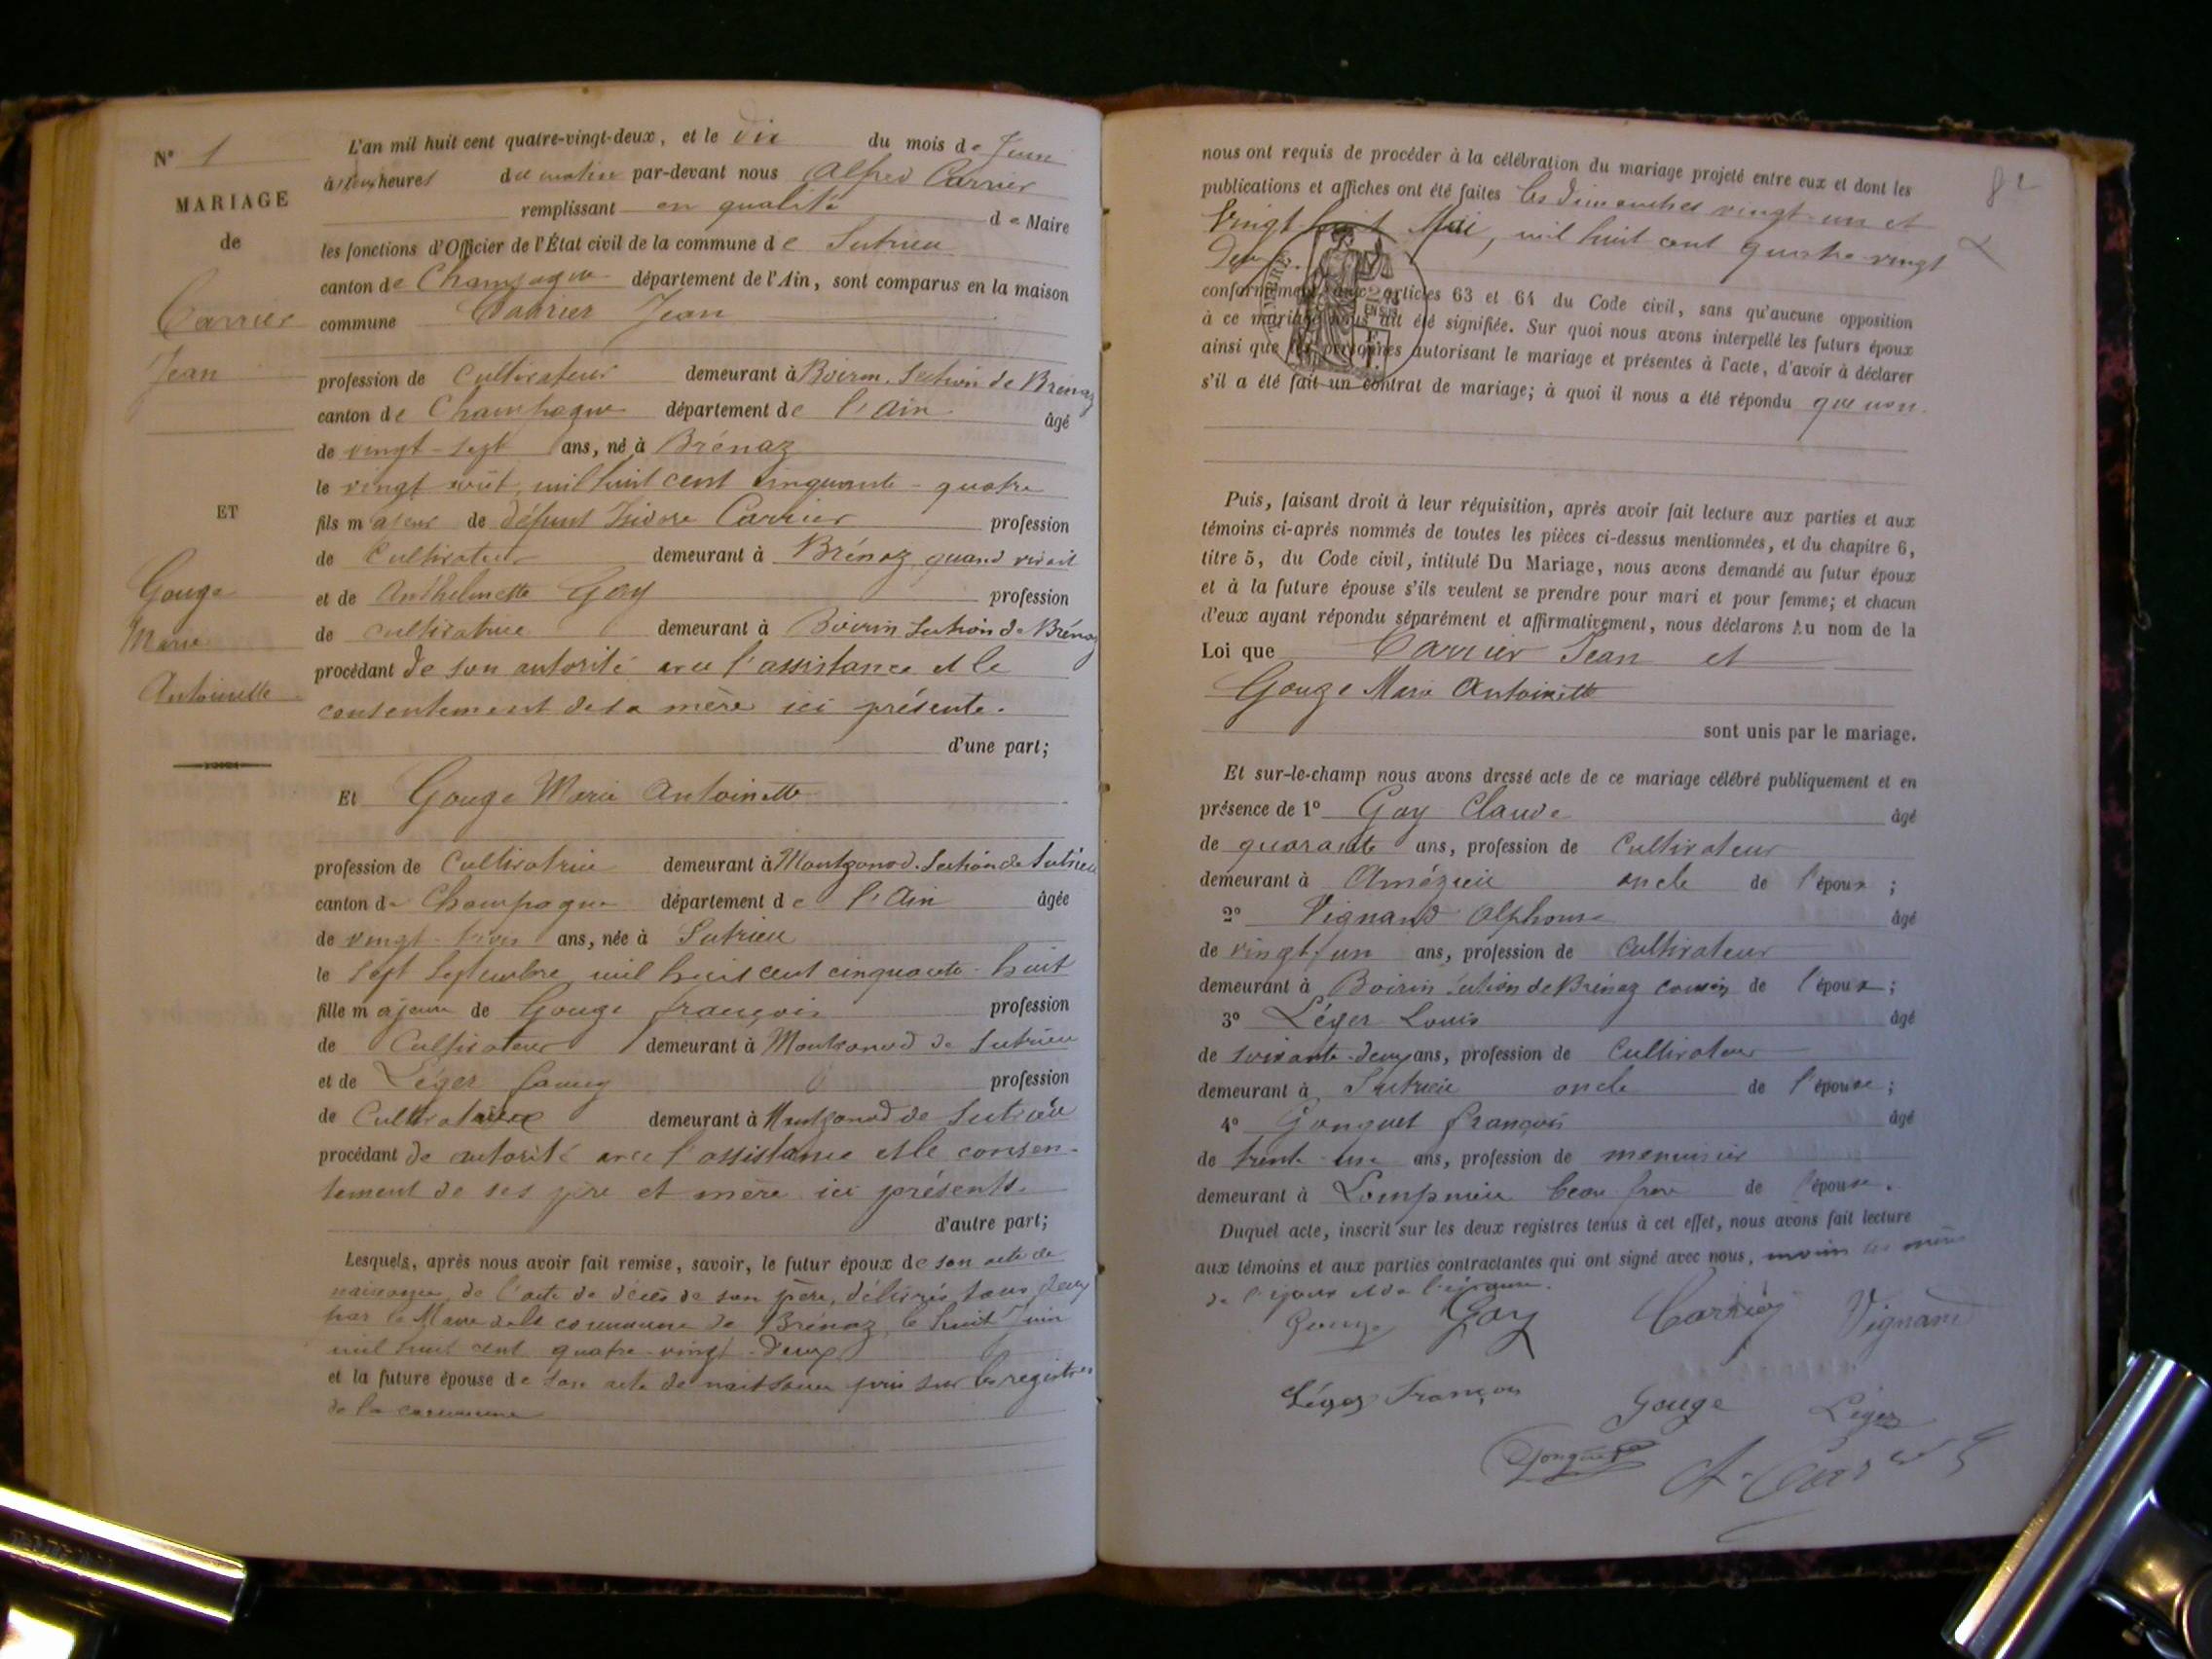 N° 1
MARIAGE
de
Carrier
Jean
ET
Gouge
Marie
Antoinette
L'an mil huit cent quatre-vingt-deux, et le dix du mois de Juin
à heures du matin par-devant nous Alfred Carrier
remplissant en qualité de Maire
les fonctions d'Officier de l'État civil de la commune de Sutrieu
canton de Champagne département de l'Ain, sont comparus en la maison
commune Carrier Jean
profession de Cultivateur demeurant à Boirin, Section de Brénaz
canton de Champagne département de l'Ain âgé
de vingt-sept ans, né à Brénaz
le vingt août, mil huit cent cinquante-quatre
fils majeur de défunt Isidore Carrier profession
de Cultivateur demeurant à Brénaz, quand vivait
et de Anthelmette Gay profession
de cultivatrice demeurant à Boirin Section de Brénaz
procédant de son autorité avec l'assistance et le
consentement de sa mère ici présente.
d'une part;
Et Gouge Marie Antoinette
profession de Cultivatrice demeurant à Montgonod. Section de Sutrieu
canton de Champagne département de l'Ain âgée
de vingt-trois ans, née à Sutrieu
le sept Septembre mil huit cent cinquante-huit
fille majeure de Gouge françois profession
de Cultivateur demeurant à Montgonod de Sutrieu
et de Léger fanny profession
de Cultivatrice demeurant à Montgonod de Sutrieu
procédant de autorité avec l'assistance et le consen-
tement de ses père et mère ici présents.
d'autre part;
Lesquels, après nous avoir fait remise, savoir, le futur époux de son acte de
naissance, de l'acte de décès de son père, délivrés tous deux
par le Maire de la commune de Brénaz, le huit Juin
mil huit cent quatre-vingt-Deux
et la future épouse de son acte de naissance pris sur les registres
de la commune
82
nous ont requis de procéder à la célébration du mariage projeté entre eux et dont les
publications et affiches ont été faites les dimanches vingt-un et
Vingt huit Mai, mil huit cent quatre-vingt
Deux.
conformément aux articles 63 et 64 du Code civil, sans qu'aucune opposition
à ce mariage nous ait été signifiée. Sur quoi nous avons interpellé les futurs époux
ainsi que les personnes autorisant le mariage et présentes à l'acte, d'avoir à déclarer
s'il a été fait un contrat de mariage; à quoi il nous a été répondu que non.
Puis, faisant droit à leur réquisition, après avoir fait lecture aux parties et aux
témoins ci-après nommés de toutes les pièces ci-dessus mentionnées, et du chapitre 6,
titre 5, du Code civil, intitulé Du Mariage, nous avons demandé au futur époux
et à la future épouse s'ils veulent se prendre pour mari et pour femme; et chacun
d'eux ayant répondu séparément et affirmativement, nous déclarons Au nom de la
Loi que Carrier Jean et
Gouge Marie Antoinette
sont unis par le mariage.
Et sur-le-champ nous avons dressé acte de ce mariage célébré publiquement et en
présence de 1° Gay Claude âgé
de quarante ans, profession de Cultivateur
demeurant à Améyzieu oncle de l'époux ;
2° Vignand Alphonse âgé
de vingt-un ans, profession de Cultivateur
demeurant à Boirin Section de Brénaz cousin de l'époux ;
3° Léger Louis âgé
de soixante-deux ans, profession de Cultivateur
demeurant à Sutrieu oncle de l'épouse ;
4° Gonguet françois âgé
de trente-un ans, profession de menuisier
demeurant à Lompnieu beau frère de l'épouse.
Duquel acte, inscrit sur les deux registres tenus à cet effet, nous avons fait lecture
aux témoins et aux parties contractantes qui ont signé avec nous, moins les mères
de l'époux et de l'épouse.
Gouge Gay Carrier Vignand
Léger François Gouge Léger
Gonguet A. Carrier